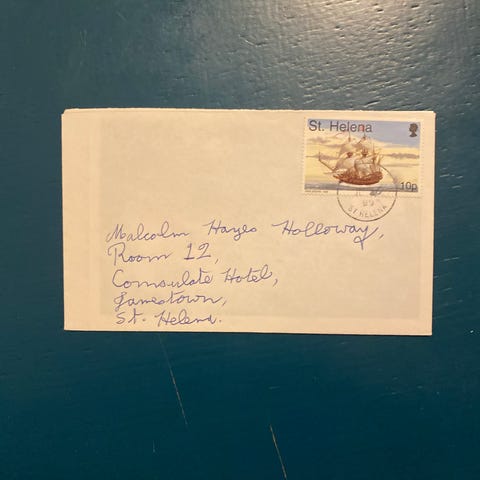 St. Helena
10p
89
ST HELENA
Malcolm Hayes Holloway,
Room 12,
Consulate Hotel,
Jamestown,
St. Helena.